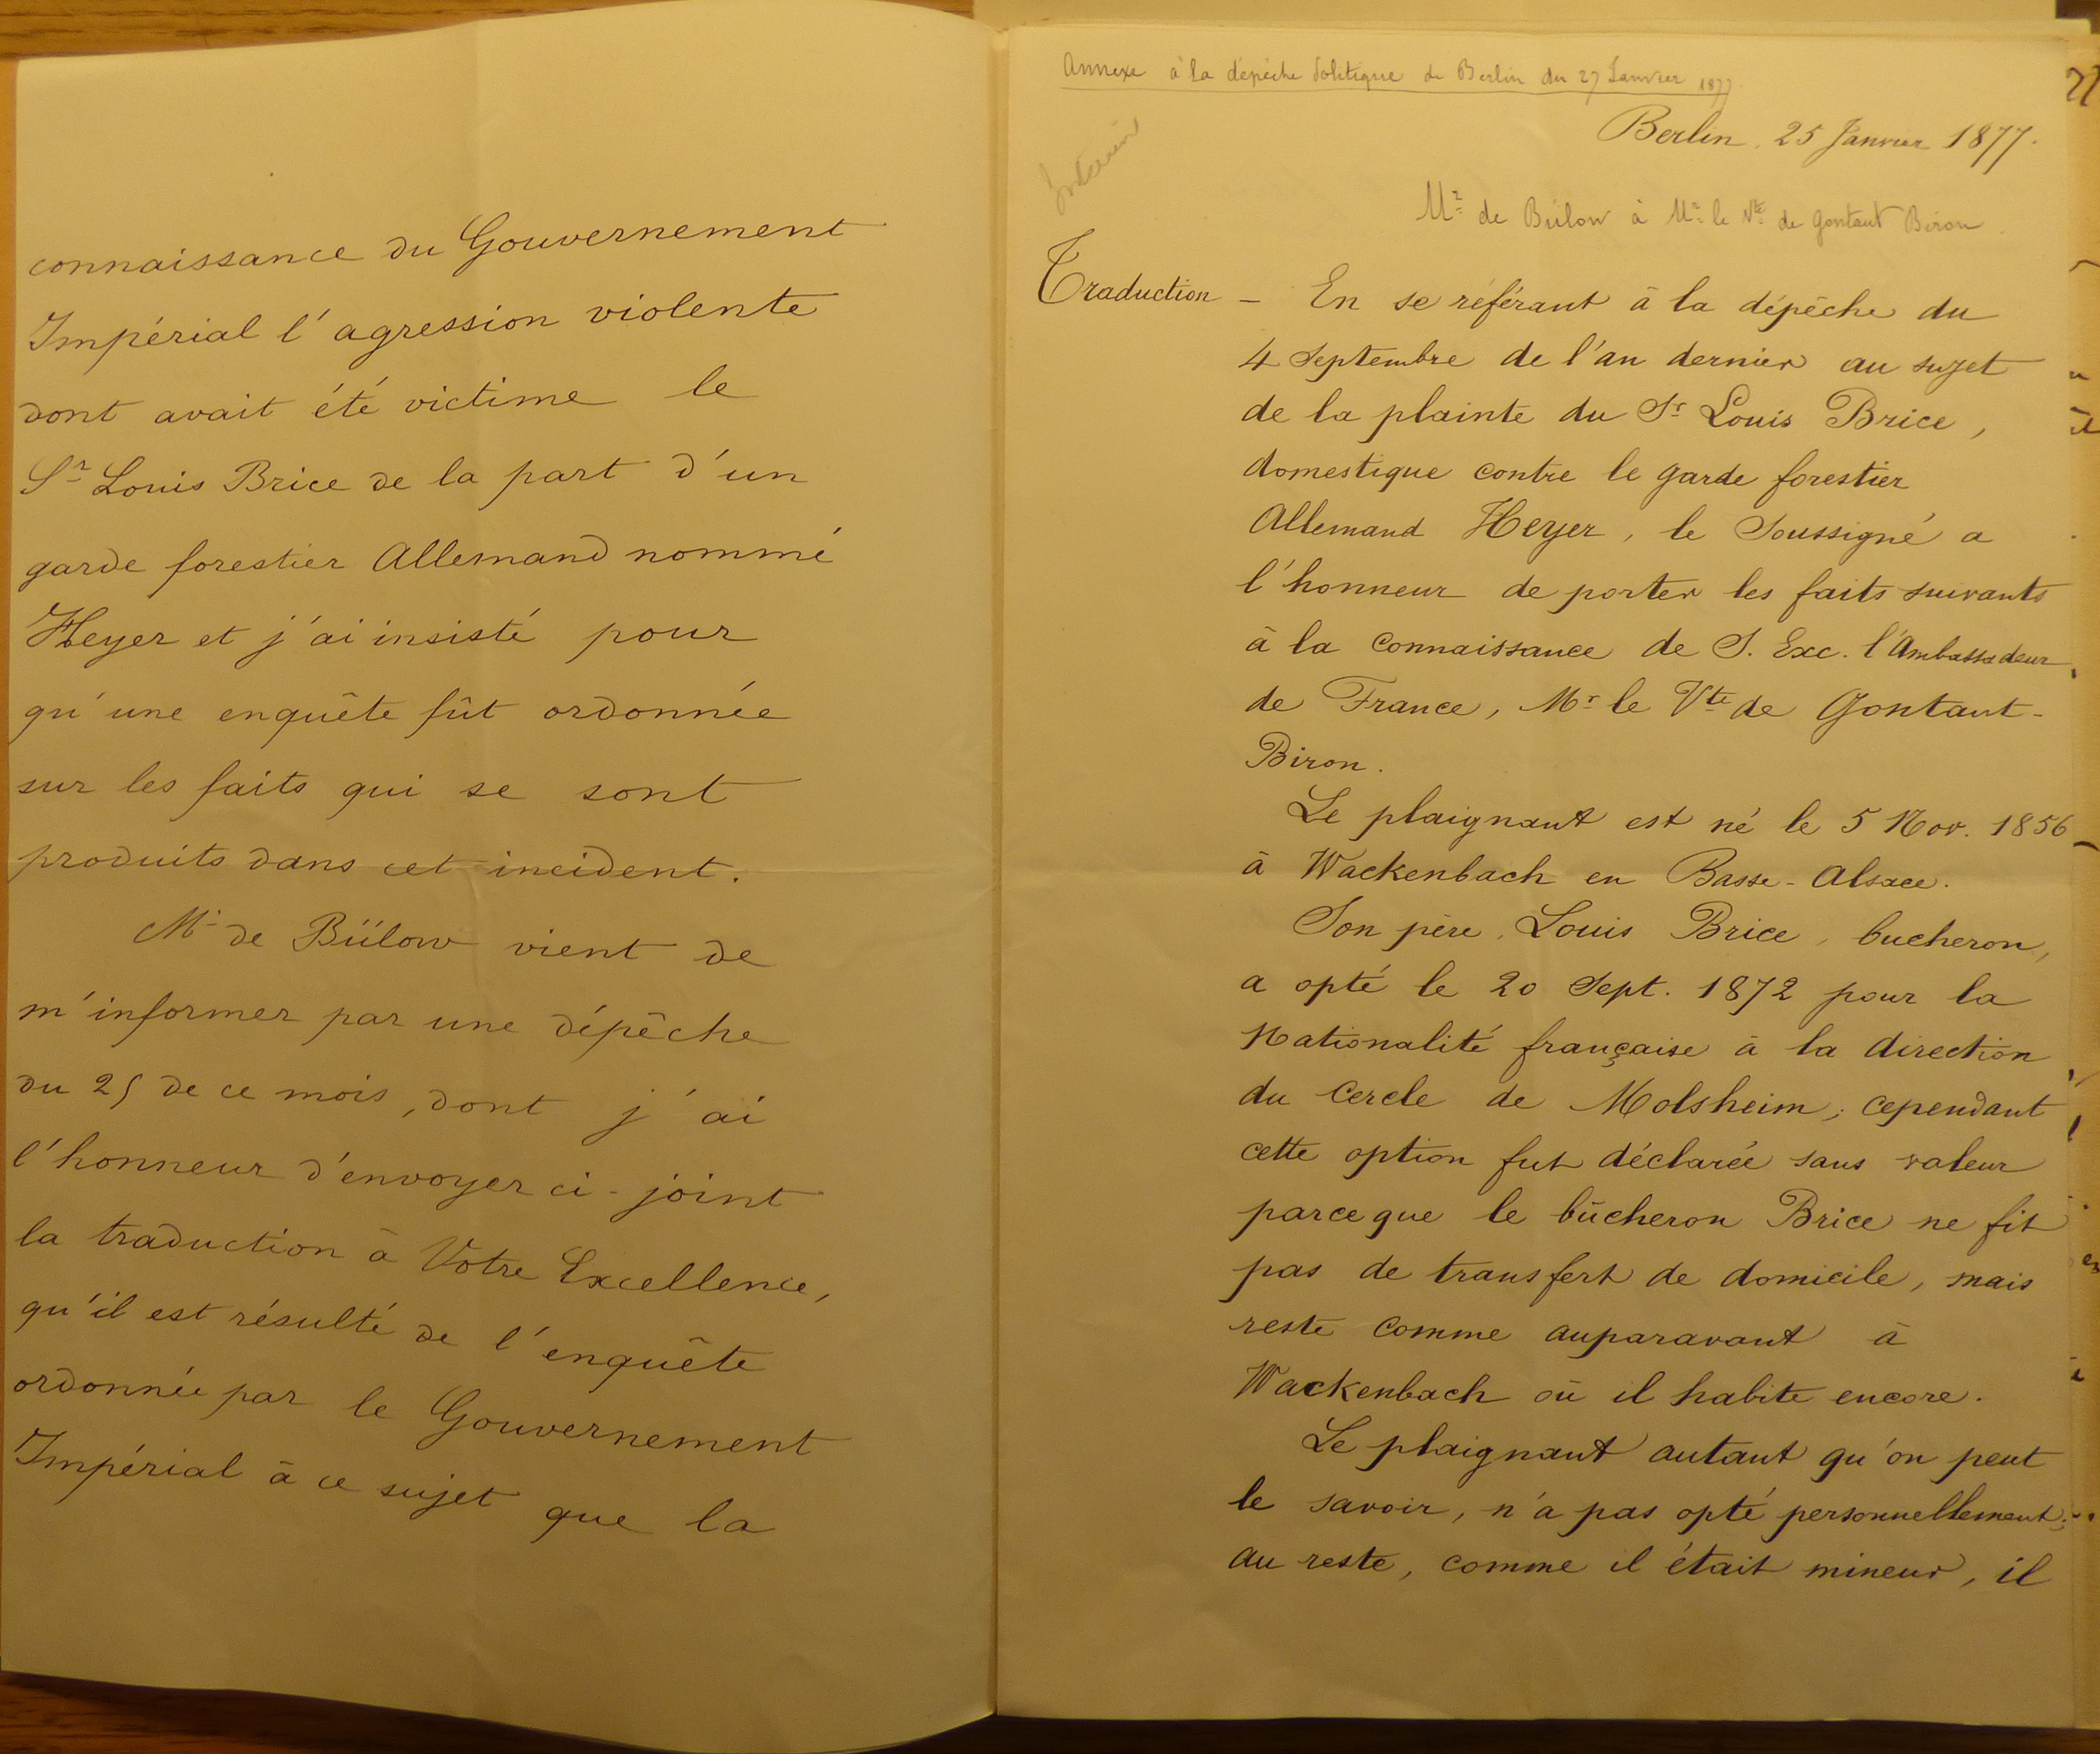 connaissance du Gouvernement
Impérial l'agression violente
dont avait été victime le
Sr Louis Brice de la part d'un
garde forestier Allemand nommé
Heyer et j'ai insisté pour
qu'une enquête fût ordonnée
sur les faits qui se sont
produits dans cet incident.
Mr de Bülow vient de
m'informer par une dépêche
du 25 de ce mois, dont j'ai
l'honneur d'envoyer ci-joint
la traduction à Votre Excellence,
qu'il est résulté de l'enquête
ordonnée par le Gouvernement
Impérial à ce sujet que la
Annexe à la dépêche Politique de Berlin du 27 Janvier 1877
Berlin, 25 Janvier 1877.
Mr de Bülow à Mr le Vte de Gontaut Biron
Traduction – En se référant à la dépêche du
4 Septembre de l'an dernier au sujet
de la plainte du Sr Louis Brice,
domestique contre le garde forestier
Allemand Heyer, le Soussigné a
l'honneur de porter les faits suivants
à la connaissance de S. Exc. l'Ambassadeur
de France, Mr le Vte de Gontaut-
Biron.
Le plaignant est né le 5 Nov. 1856
à Wackenbach en Basse-Alsace.
Son père, Louis Brice, bucheron,
a opté le 20 Sept. 1872 pour la
Nationalité française à la direction
du Cercle de Molsheim; cependant
cette option fut déclarée sans valeur
parceque le bûcheron Brice ne fit
pas de transfert de domicile, mais
reste comme auparavant à
Wackenbach où il habite encore.
Le plaignant autant qu'on peut
le savoir, n'a pas opté personnellement;
au reste, comme il était mineur, il